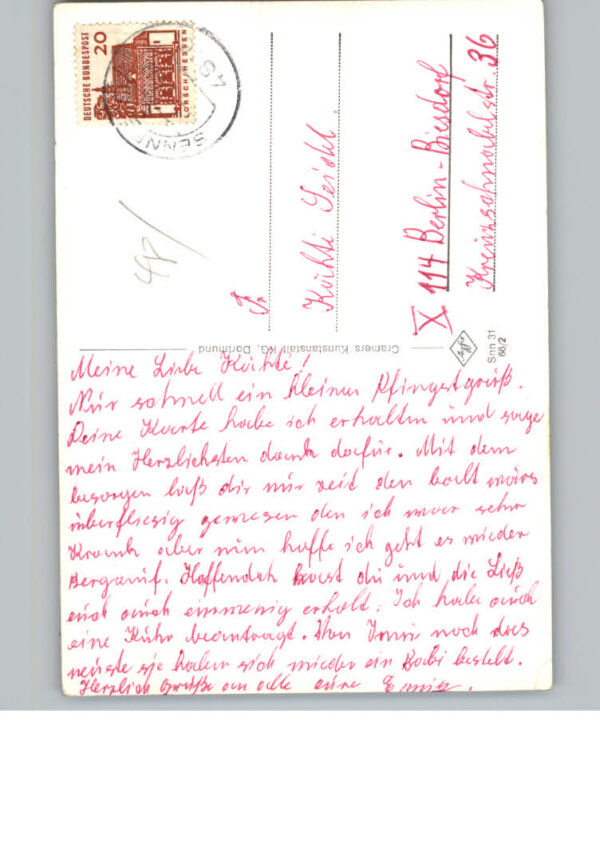 DEUTSCHE BUNDESPOST
20
LORSCH/HESSEN
SENN
48
4P
Fr
Käthi Seidel.
X 114 Berlin-Biesdorf
Kreuzschnabelstr. 36
Cramers Kunstanstalt KG, Dortmund
Snn 31
66/2
Meine Liebe Käthe!
Nur schnell ein kleinen Pfingstgruß.
Deine Karte habe ich erhalten und sage
mein Herzlichsten dank dafür. Mit dem
besorgen laß dir nur zeit den bald wäre
überfliesig gewesen den ich war sehr
Krank aber nun hoffe ich geht es wieder
Bergauf. Hoffendlich hast du und die
euch auch einwenig erholt. Ich habe auch
eine Kuhr beantragt. Von noch das
neuste sie haben sich wieder ein Babi bestelt.
Herzlich Grüße an alle eure